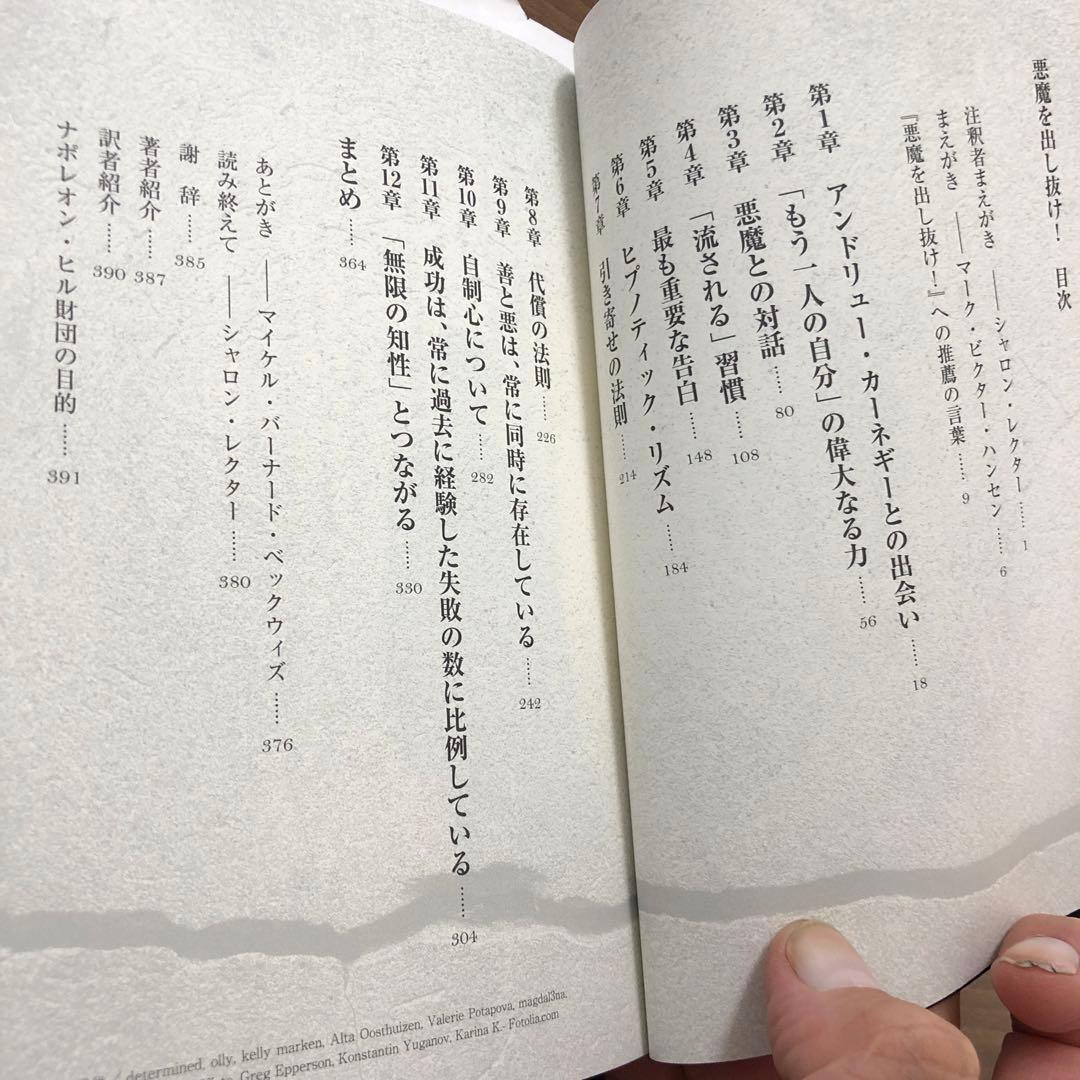 悪魔を出し抜け！　目次
注釈者まえがき　――シャロン・レクター……1
まえがき　――マーク・ビクター・ハンセン……6
『悪魔を出し抜け！』への推薦の言葉……9
第1章　アンドリュー・カーネギーとの出会い……18
第2章　「もう一人の自分」の偉大なる力……56
第3章　悪魔との対話……80
第4章　「流される」習慣……108
第5章　最も重要な告白……148
第6章　ヒプノティック・リズム……184
第7章　引き寄せの法則……214
第8章　代償の法則……226
第9章　善と悪は、常に同時に存在している……242
第10章　自制心について……282
第11章　成功は、常に過去に経験した失敗の数に比例している……304
第12章　「無限の知性」とつながる……330
まとめ……364
あとがき　――マイケル・バーナード・ベックウィズ……376
読み終えて　――シャロン・レクター……380
謝　辞……385
著者紹介……387
訳者紹介……390
ナポレオン・ヒル財団の目的……391
/ determined, olly, kelly marken, Alta Oosthuizen, Valerie Potapova, magdal3na,
Greg Epperson, Konstantin Yuganov, Karina K.- Fotolia.com